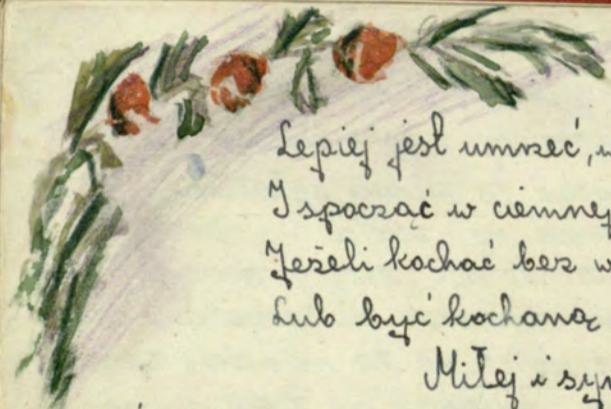 Lepiej jest umrzeć,
I spocząć w ciemnej
Jeżeli kochać bez w
Lub być kochaną
Miłej i sym